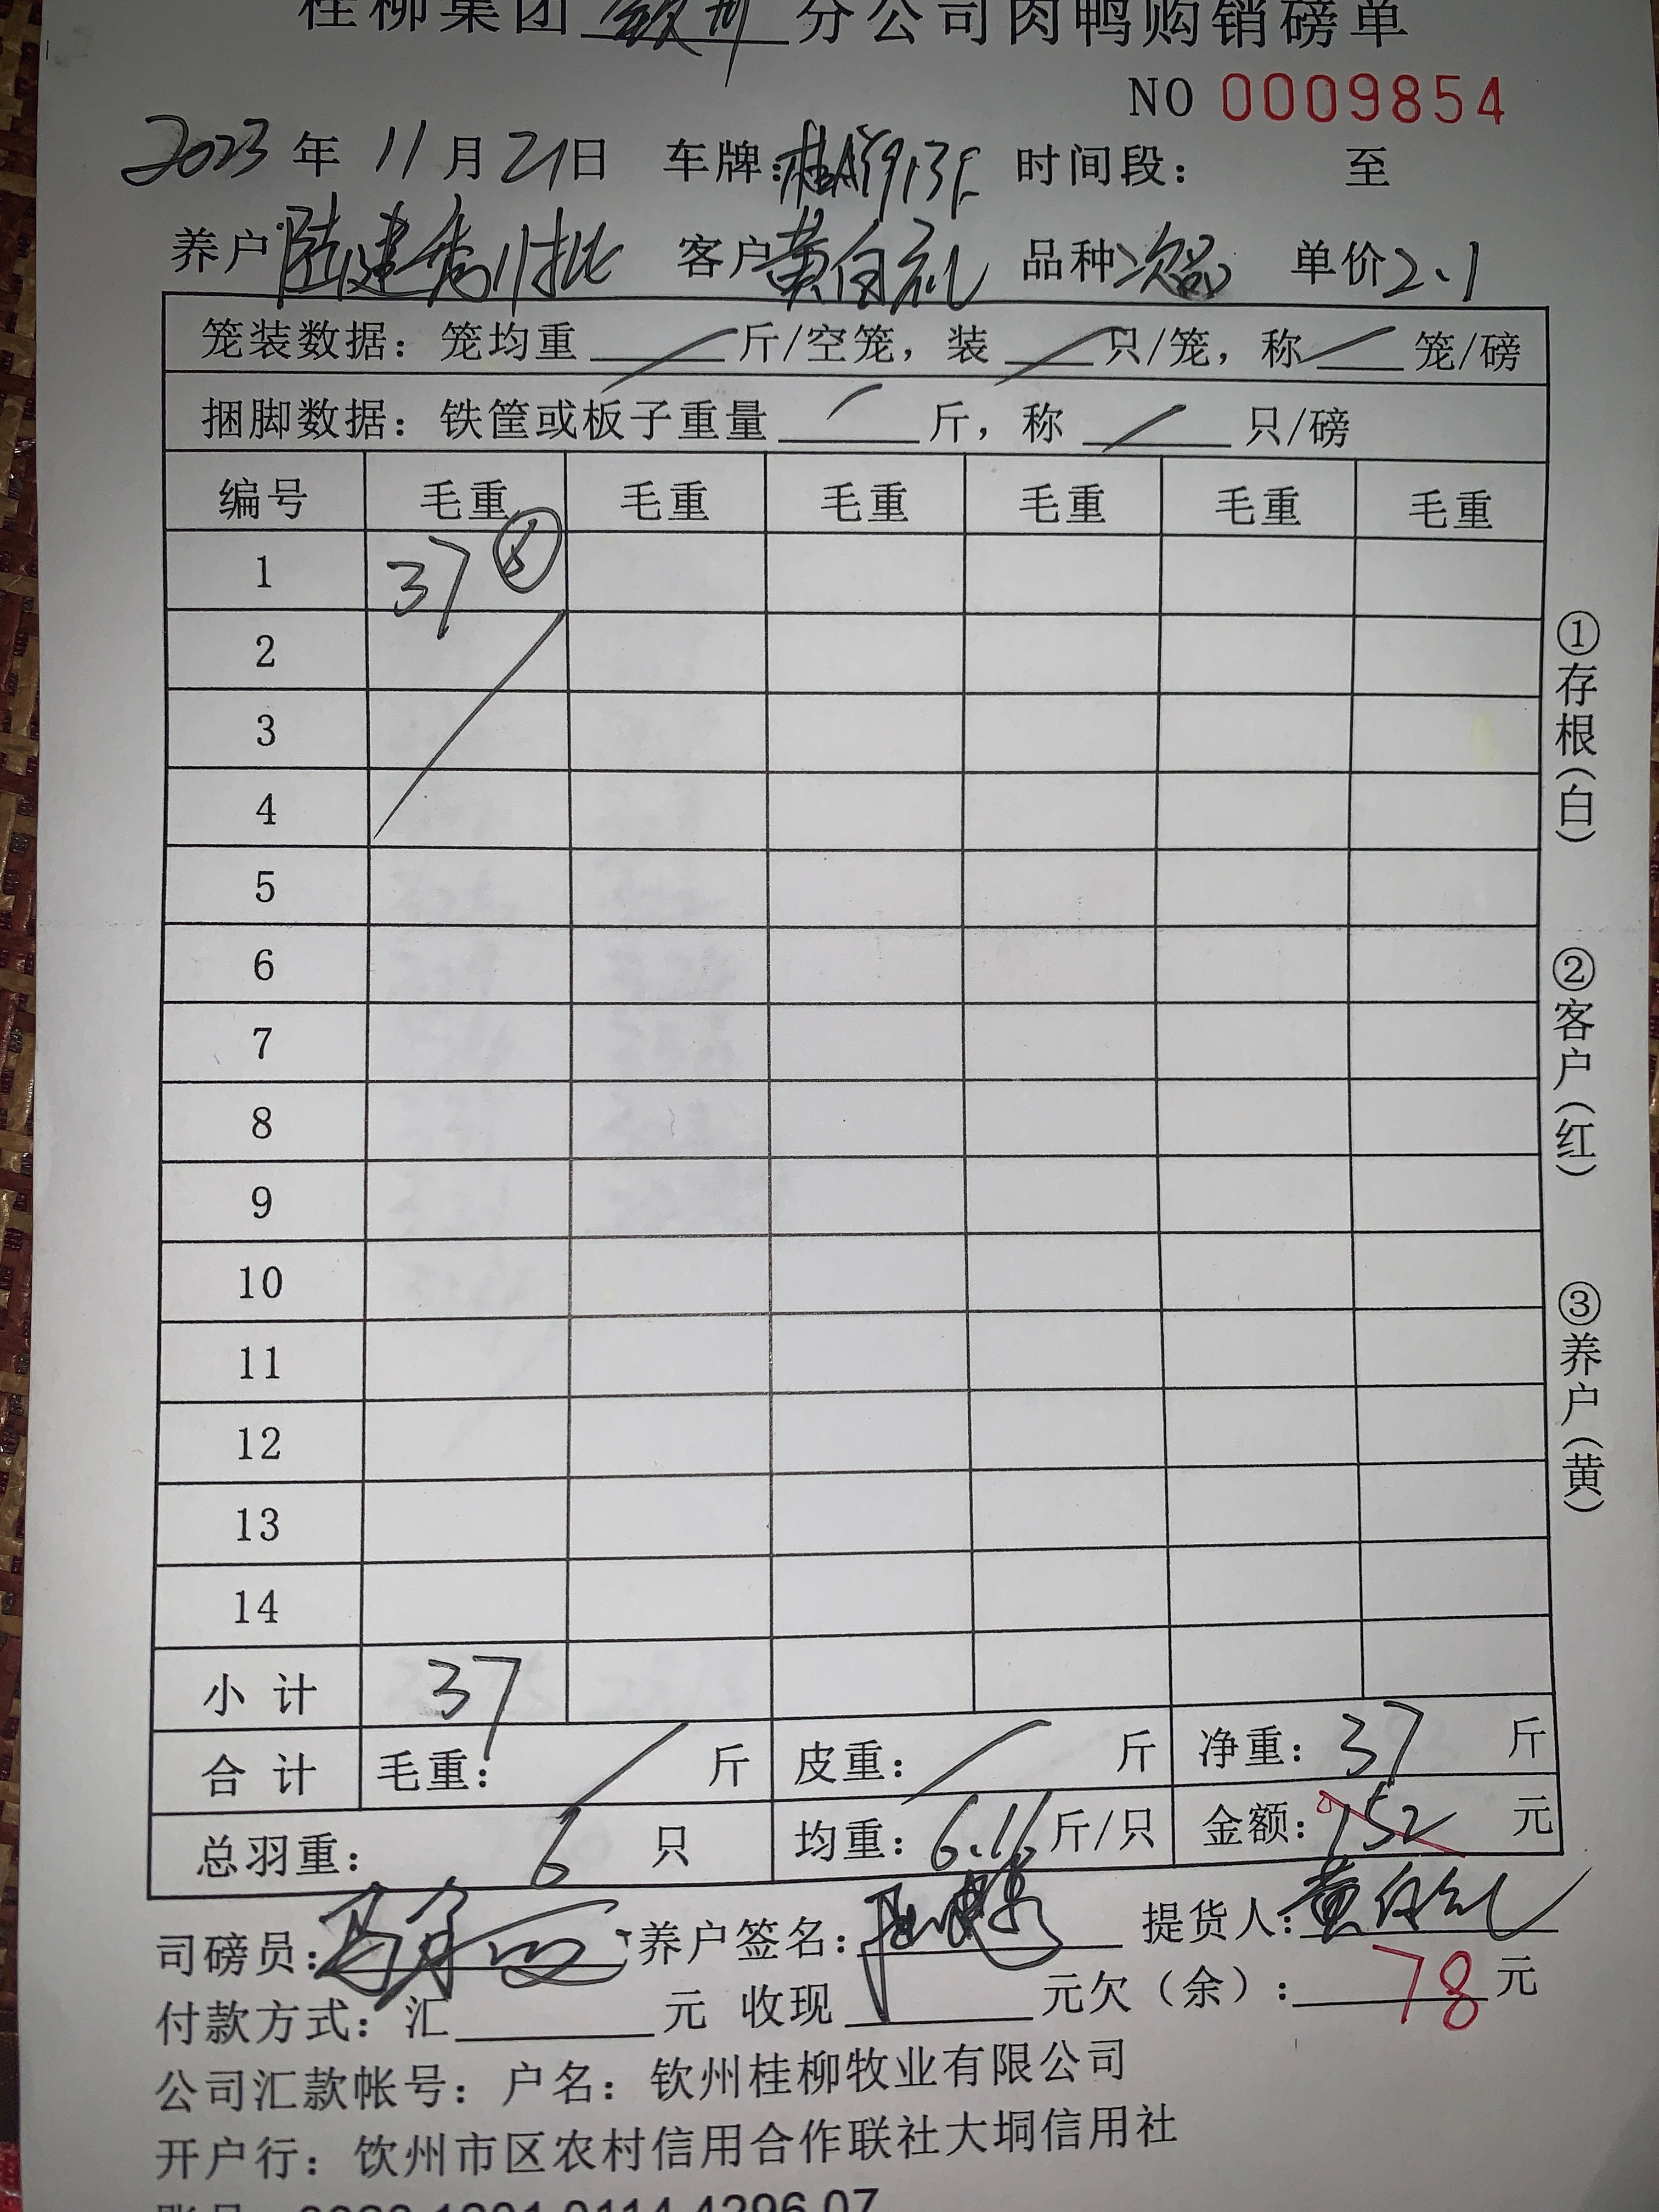 桂柳集团 钦州 分公司肉鸭购销磅单
NO 0009854
2023 年 11 月 21 日 车牌: 时间段: 至
养户 陆建 批 客户 黄自礼 品种 次品 单价 2.1
笼装数据: 笼均重 / 斤/空笼, 装 / 只/笼, 称 / 笼/磅
捆脚数据: 铁筐或板子重量 / 斤, 称 / 只/磅
编号 毛重 毛重 毛重 毛重 毛重 毛重
1 37
2
3
4
5
6
7
8
9
10
11
12
13
14
小计 37
合计 毛重: / 斤 皮重: / 斤 净重: 37 斤
总羽重: 6 只 均重: 6.16 斤/只 金额: 152 元
①存根(白)
②客户(红)
③养户(黄)
司磅员: 养户签名: 提货人: 黄自礼
付款方式: 汇 元 收现 元欠(余): 78 元
公司汇款帐号: 户名: 钦州桂柳牧业有限公司
开户行: 饮州市区农村信用合作联社大垌信用社